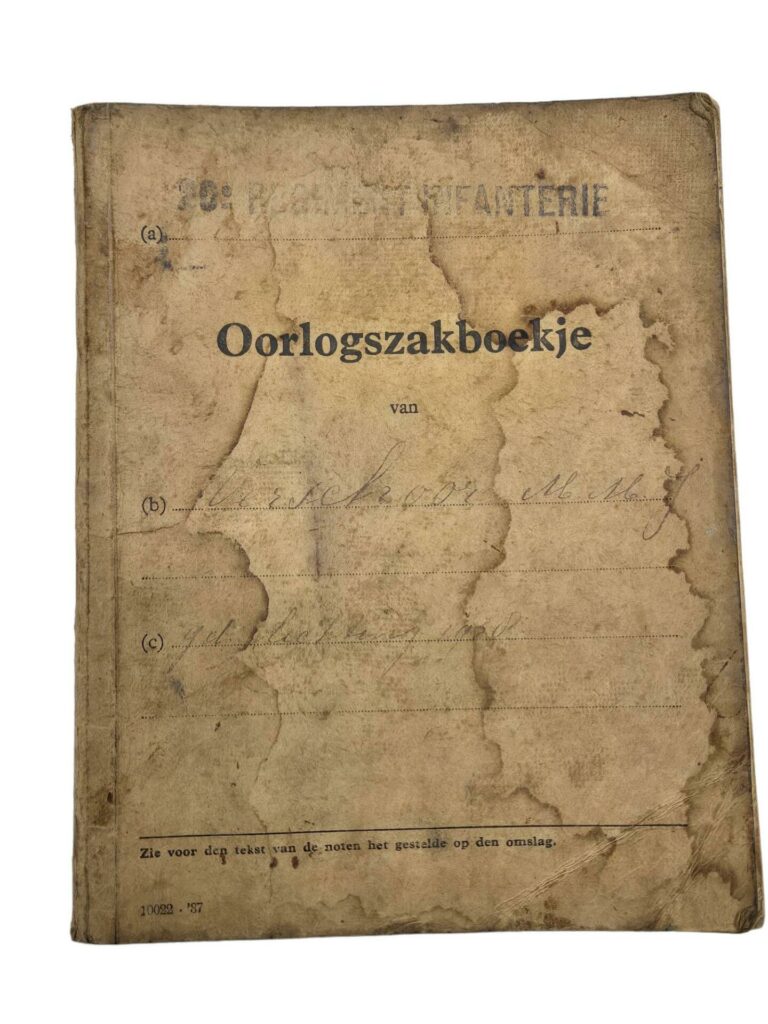 REGIMENT INFANTERIE
(a)
Oorlogszakboekje
van
(b) Verschoor M M J
(c)
Zie voor den tekst van de noten het gestelde op den omslag.
10022 - '37